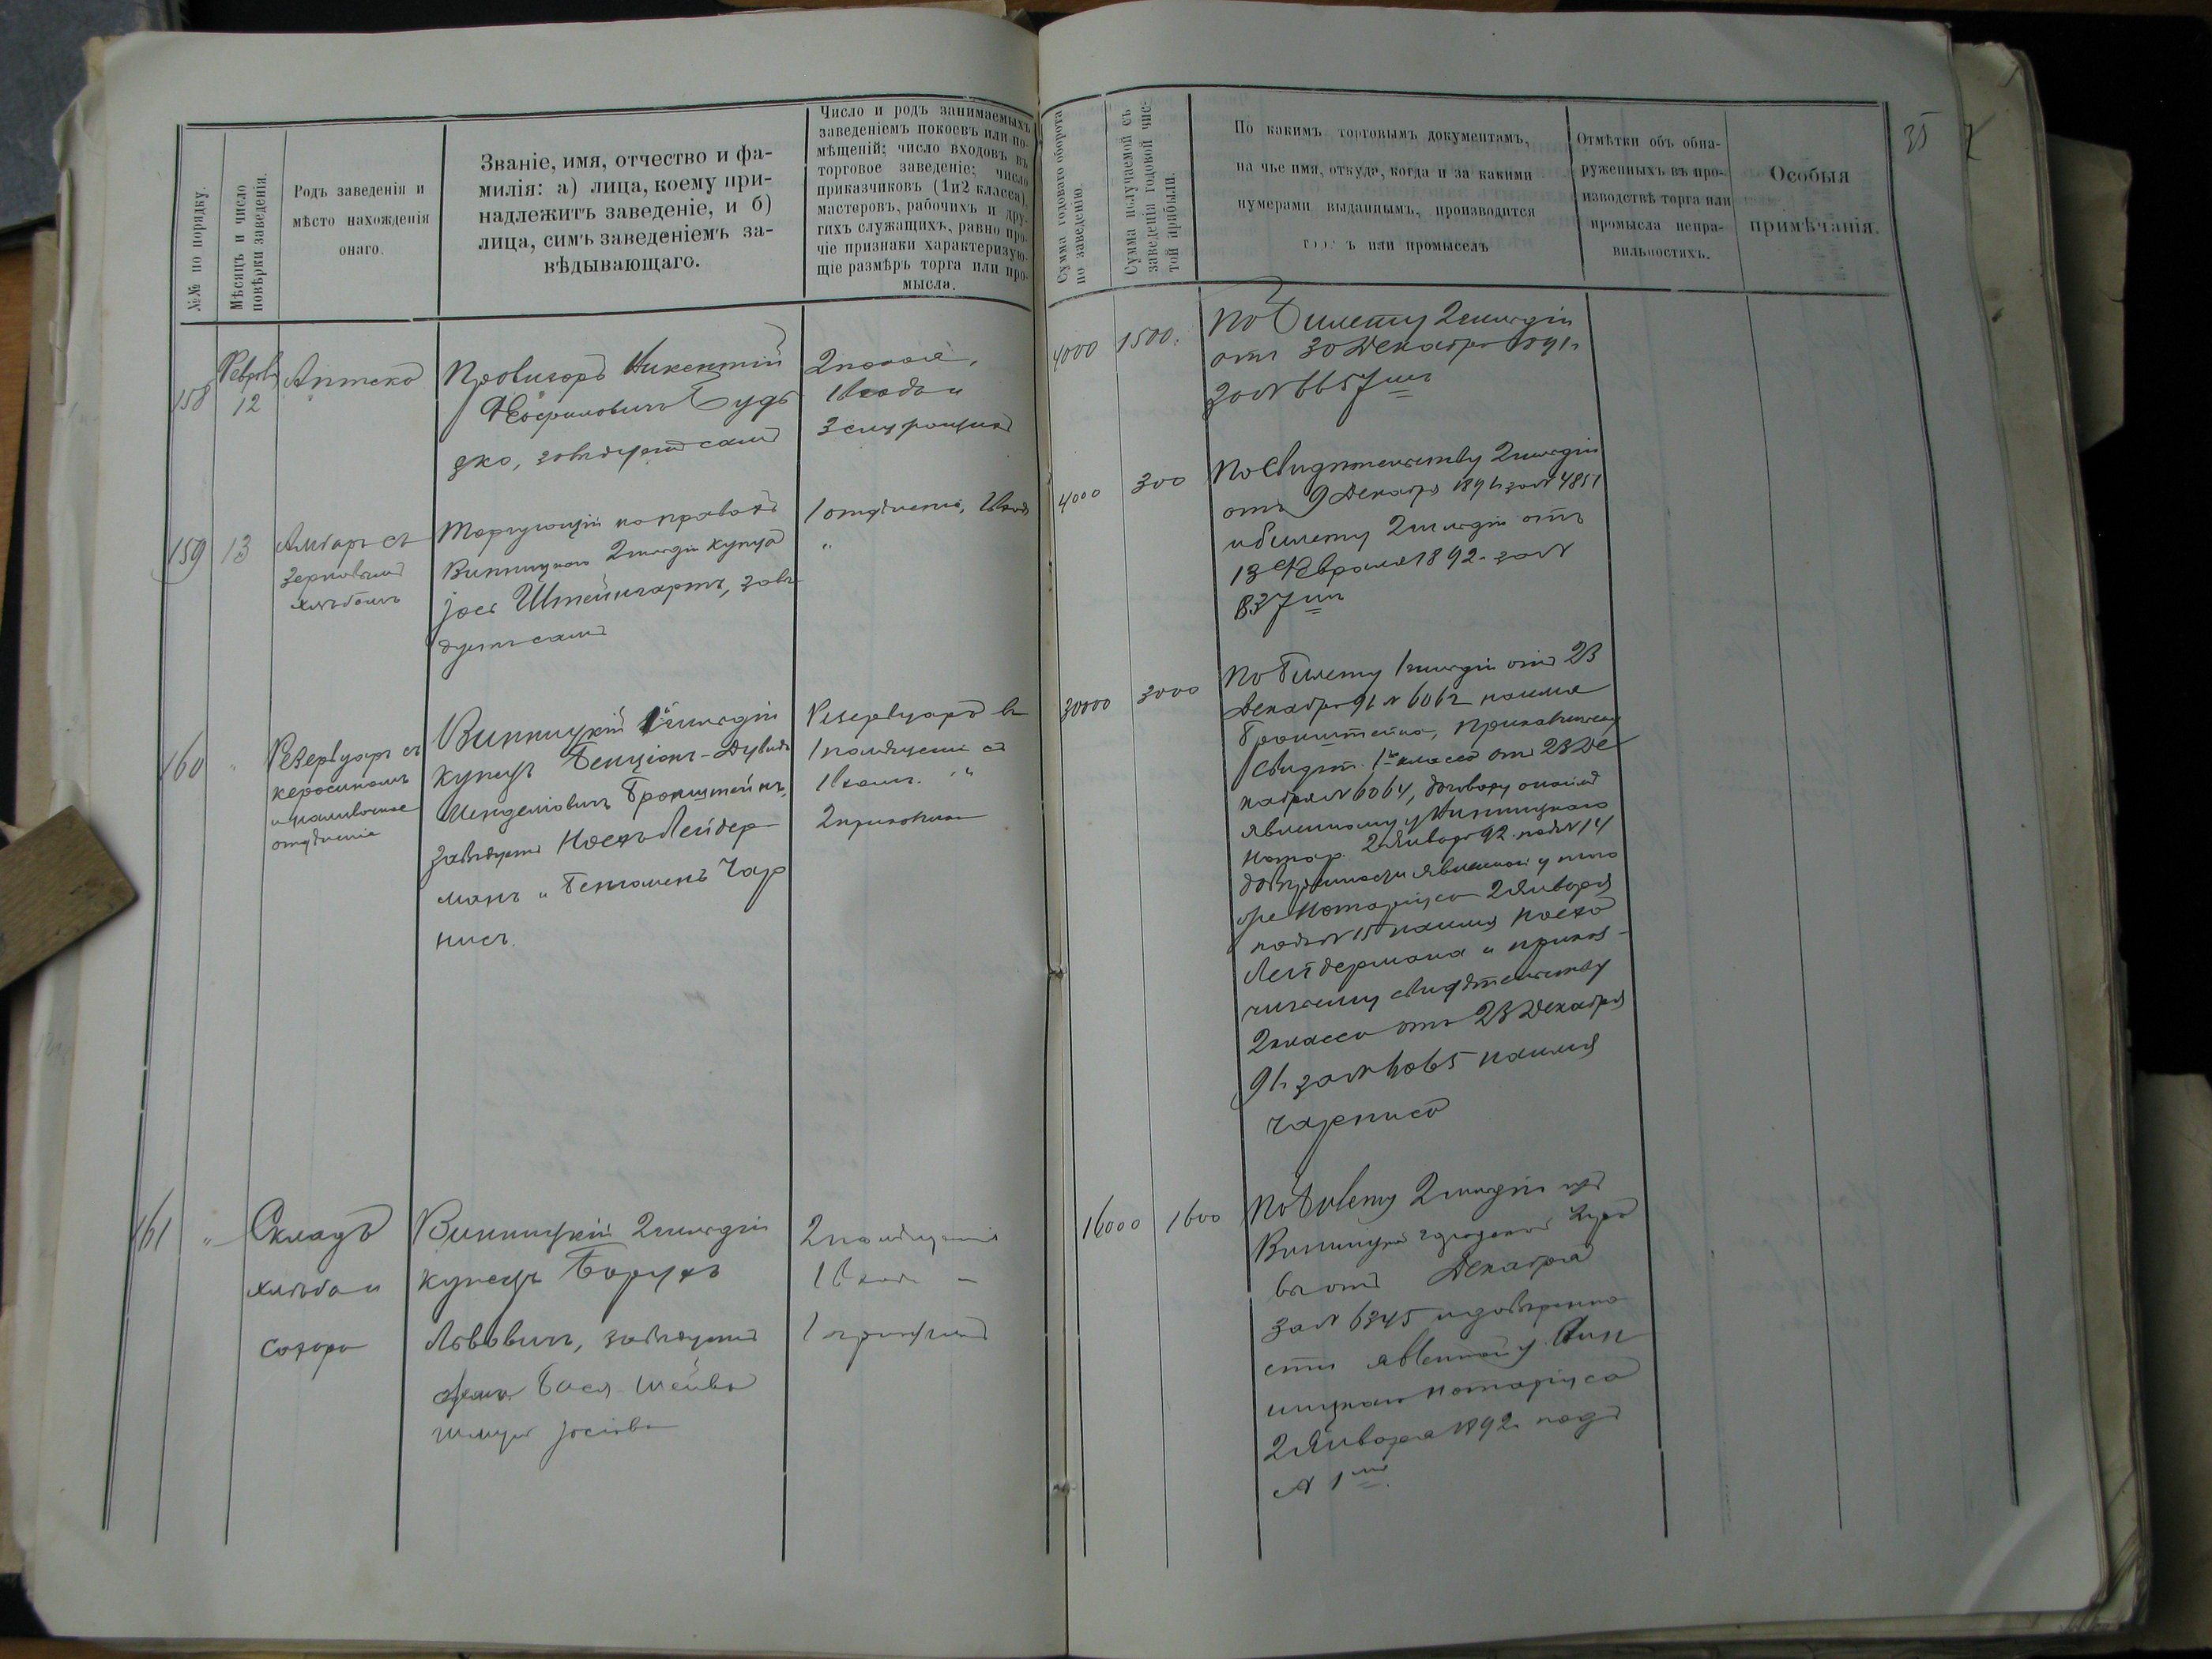 35
№№ по порядку.
Мѣсяцъ и число
повѣрки заведенія.
Родъ заведенія и
мѣсто нахожденія
онаго.
Званіе, имя, отчество и фа-
милія: а) лица, коему при-
надлежитъ заведеніе, и б)
лица, симъ заведеніемъ за-
вѣдывающаго.
Число и родъ занимаемыхъ
заведеніемъ покоевъ или по-
мѣщеній; число входовъ въ
торговое заведеніе; число
приказчиковъ (1 и 2 класса),
мастеровъ, рабочихъ и дру-
гихъ служащихъ, равно про-
чіе признаки характеризую-
щіе размѣръ торга или про-
мысла.
Сумма годоваго оборота
по заведенію.
Сумма получаемой съ
заведенія годовой чис-
той прибыли.
По какимъ торговымъ документамъ,
на чье имя, откуда, когда и за какими
нумерами выданнымъ, производится
или промыселъ
Отмѣтки объ обна-
руженныхъ въ про-
изводствѣ торга или
промысла непра-
вильностяхъ.
Особыя
примѣчанія.
158
Февраля
12
Аптека
Провизоръ Викентій
Будь
дко, завѣдуетъ самъ
2 покоя,
1 входъ и
3 служащихъ
4000
1500.
По билету 2 гильдіи
отъ 30 Декабря 1891 г.
за № 6657мъ
159
13
Амбаръ съ
зерновымъ
хлѣбомъ
Торгующій на правахъ
Винницкаго 2 гильдіи купца
Іось Штейнгартъ, завѣ-
дуетъ самъ
1 отдѣленіе, 1 входъ
"
4000
300
По Свидѣтельству 2 гильдіи
отъ 9 Декабря 1891 за № 4851
и билету 2 гильдіи отъ
13 Февраля 1892 за №
837мъ
160
"
Резервуаръ съ
керосиномъ
и наливочное
отдѣленіе
Винницкій 1й гильдіи
купецъ Бенціонъ-Дувидъ
Менделіовичъ Бронштейнъ,
завѣдуетъ Носехъ Лейдер
манъ и Беніоменъ Чар
нисъ.
Резервуаръ въ
1 помѣщеніи съ
1 входъ. "
2 приказчика
30000
3000
По билету 1 гильдіи отъ 23
Декабря 91 № 6062 на имя
Бронштейна, Приказчичьему
свидѣт. 1го класса отъ 23 Де
кабря № 6064, договору
явленному у Винницкаго
Нотар. 2 Января 92 подъ № 14
довѣренности явленной у того
же Нотаріуса 2 Января
подъ № 15 на имя Носеха
Лейдермана и приказ-
чичьему свидѣтельству
2 класса отъ 23 Декабря
91 г. за № 6065 на имя
Чарниса
161
"
Складъ
хлѣба и
сахара
Винницкій 2 гильдіи
купецъ Борухъ
Львовичъ, завѣдуетъ
жена Бася-Шейва
2 помѣщенія
1 входъ –
1
16000
1600
По билету 2 гильдіи изъ
Винницкой Городской Упра
вы отъ Декабря
за № 6345 и довѣренно
сти явленной у Вин
ницкаго Нотаріуса
2 Января 1892 подъ
№ 1мъ